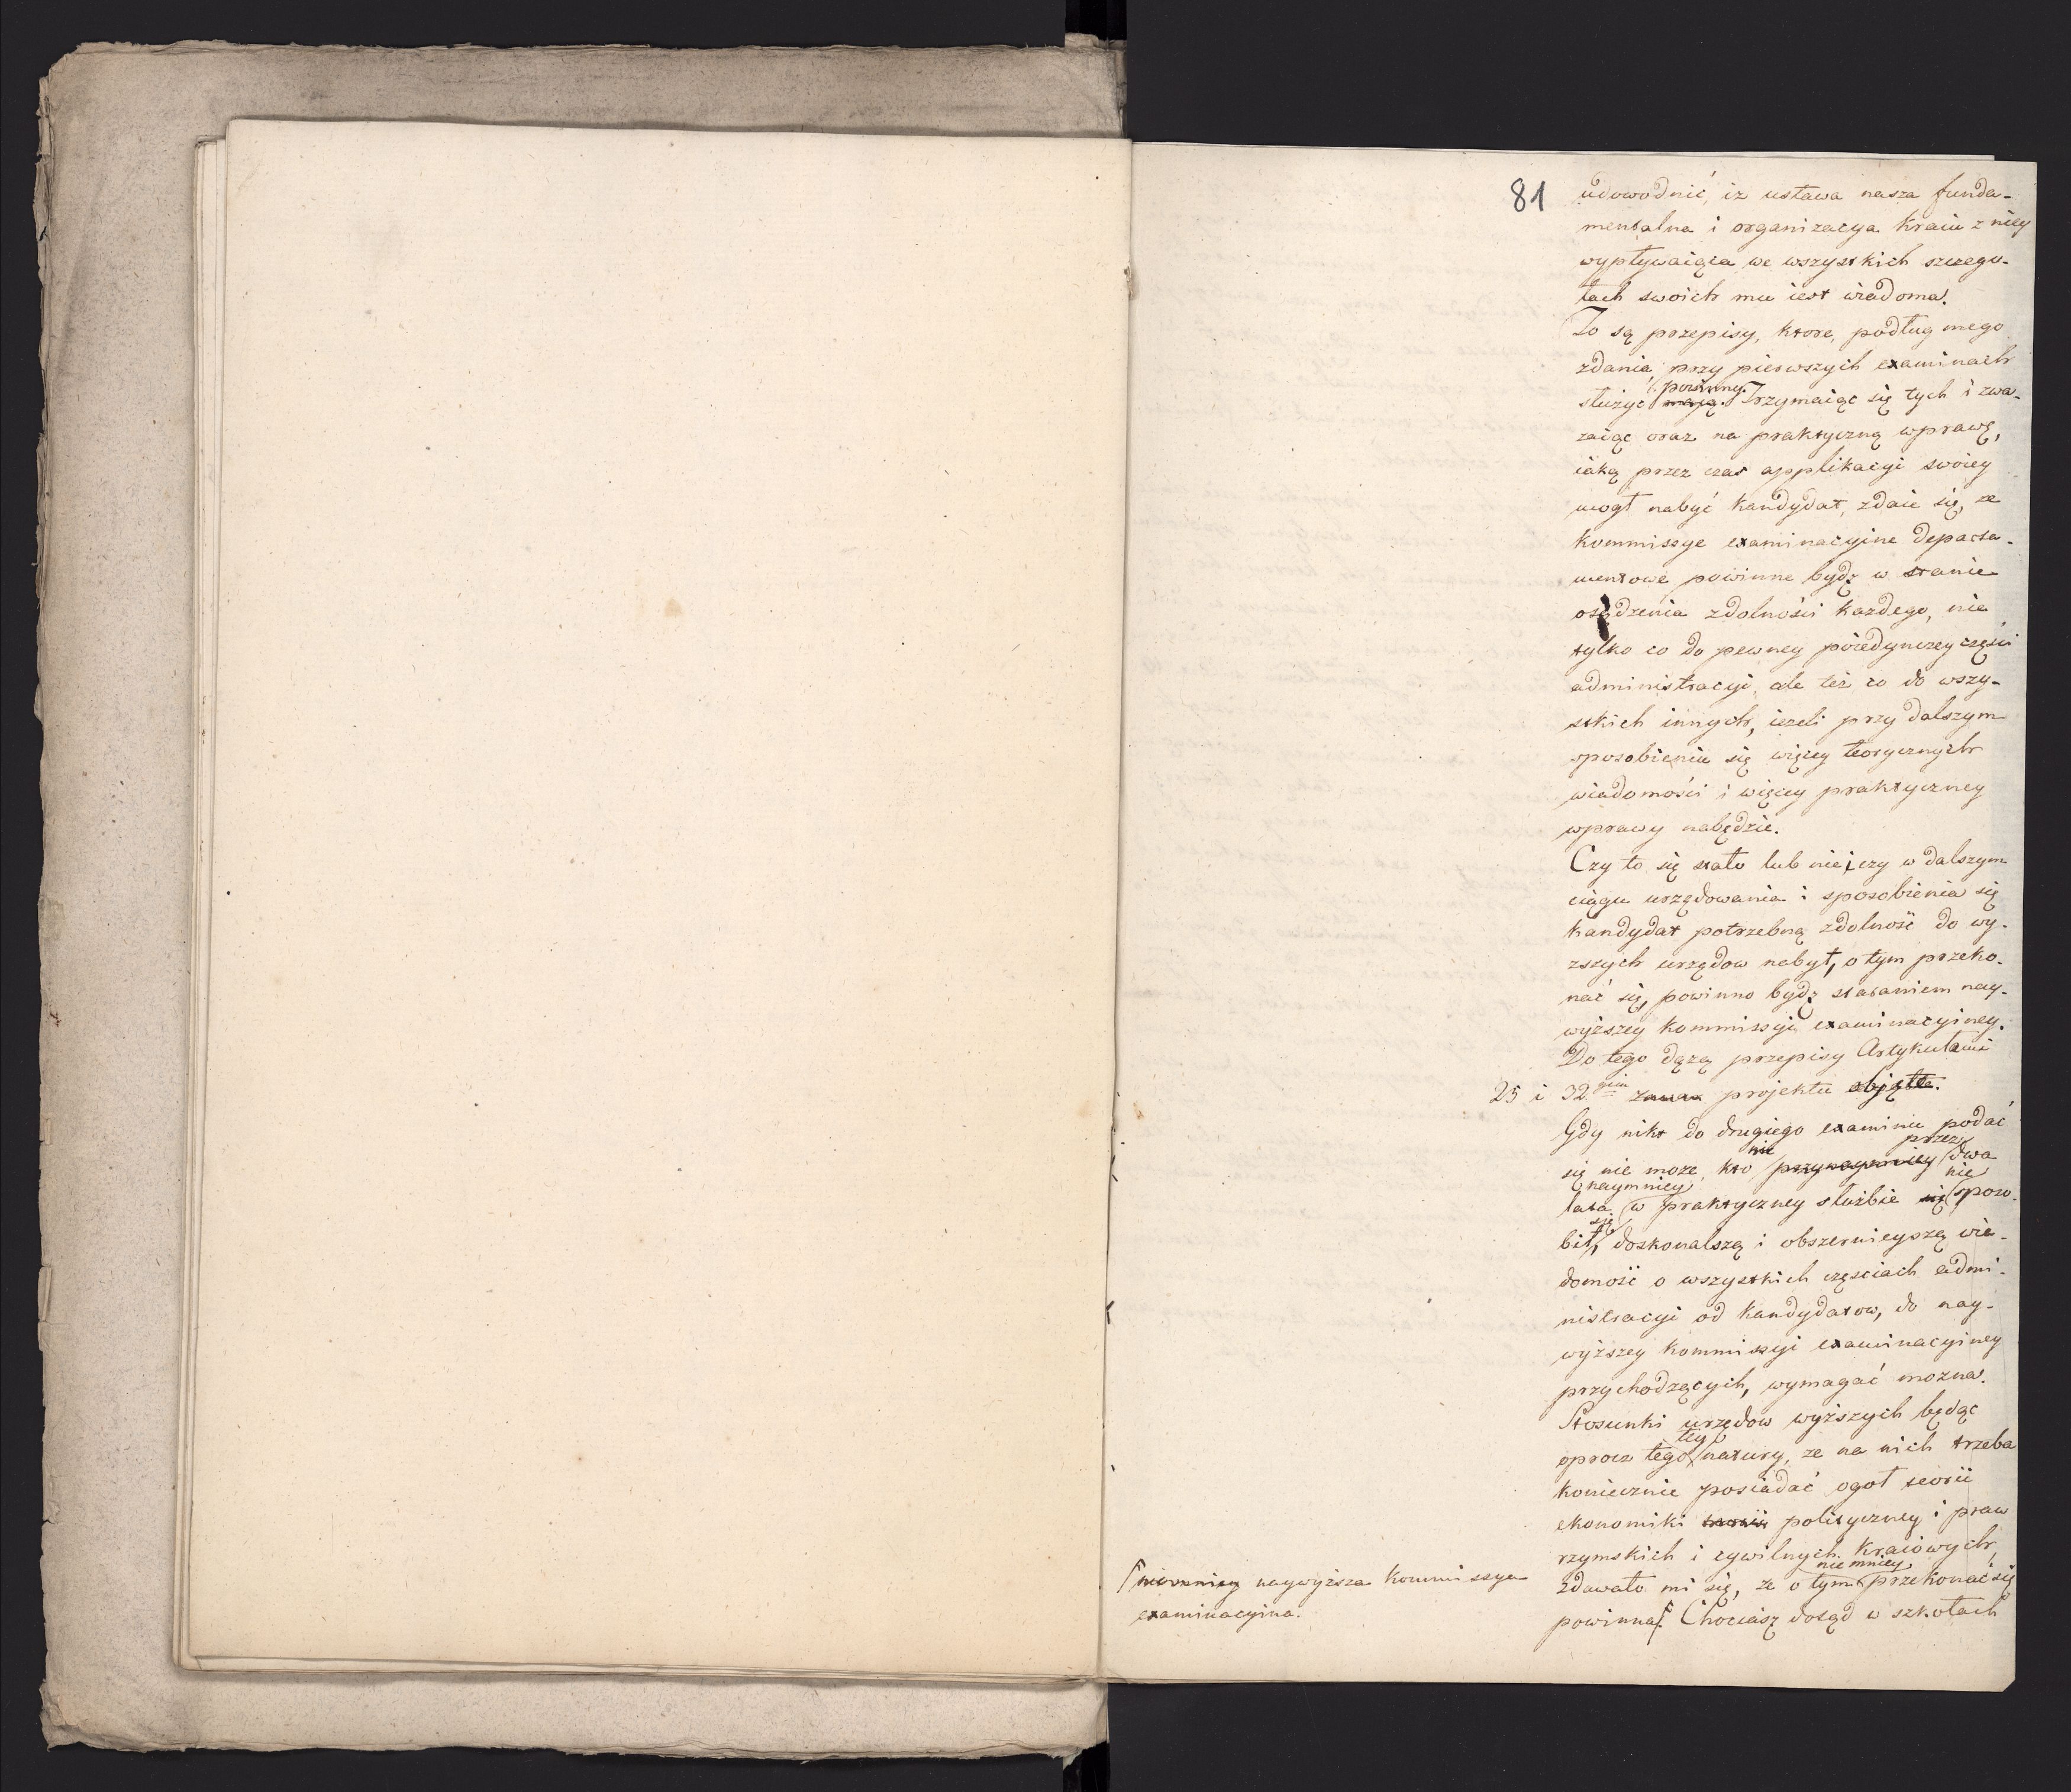 81
udowodnić, iż ustawa nasza funda-
mentalna i organizacya Kraiu z niey
wypływaiąca we wszystkich szczegu-
łach swoich mu iest wiadoma.
To są przepisy, ktore, podług mego
zdania przy pierwszych examinach
powinny.
służyć mają. Trzymaiąc się tych i zwa-
żaiąc oraz na praktyczną wprawę,
iaką przez czas applikacyi swoiey
mogł nabyć Kandydat, zdaie się, że
Kommissye examinacyine departa-
mentowe powinne bydź w stanie
osądzenia zdolności każdego, nie
tylko co do pewney poiedynczey części
administracyi, ale też co do wszy-
stkich innych, ieżeli przy dalszym
sposobieniu się więcey teorycznych
wiadomości i więcey praktyczney
wprawy nabędzie.
Czy to się stało lub nie, czy w dalszym
ciągu urzędowania i sposobienia się
Kandydat potrzebną zdolność do wy-
zszych urzędow nabył, o tym przeko-
nać się, powinno bydź staraniem nay-
wyższey Kommissyi examinacyiney.
Do tego dążą przepisy Artykułami
25 i 32 gim projektu objęte.
Gdy nikt do drugiego examinu podać
nie przez
się nie może, kto przynaymniey dwa
naymniey nie
lata w praktyczney służbie się sposo-
się
bił, doskonalszą i obszernieyszą wia-
domość o wszystkich częściach admi-
nistracyi od Kandydatow, do nay-
wyższey Kommissyi examinacyiney
przychodzących, wymagać można.
Stosunki urzędow wyższych będąc
tey
oprocz tego natury, że na nich trzeba
koniecznie posiadać ogoł teorii
ekonomiki teorii polityczney i praw
rzymskich i cywilnych Kraiowych,
nie mniey
zdawało mi się, że o tym przekonać się
powinna. Chociasz dotąd w szkołach
niemniey naywyższa Kommissya
examinacyina.